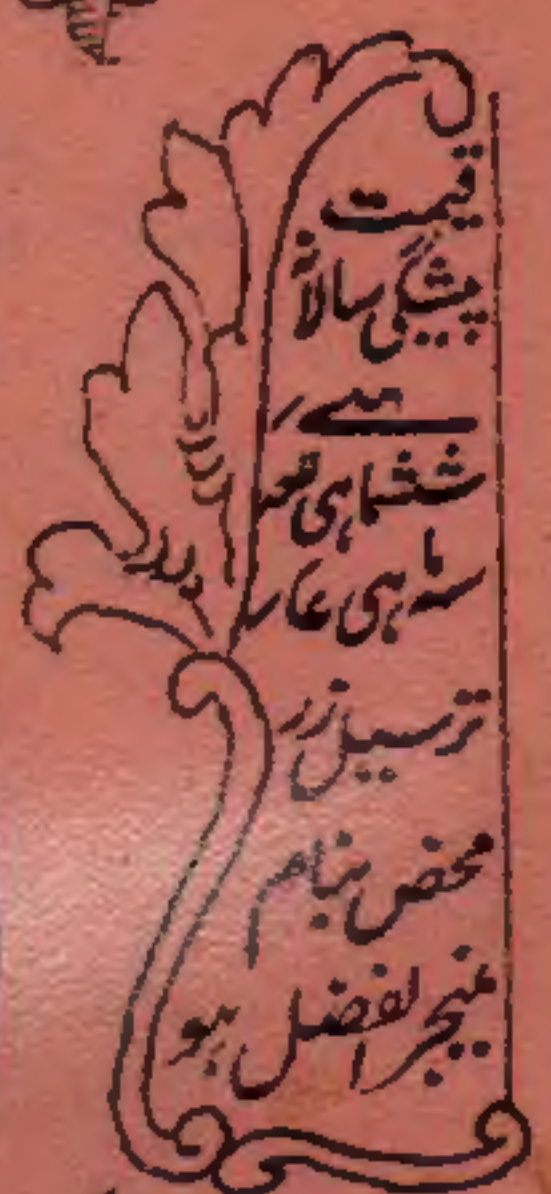 قیمت
پیشگی سالانہ
ششماہی
سہ ماہی
ترسیل زر
محض بنام
منیجر الفضل ہو